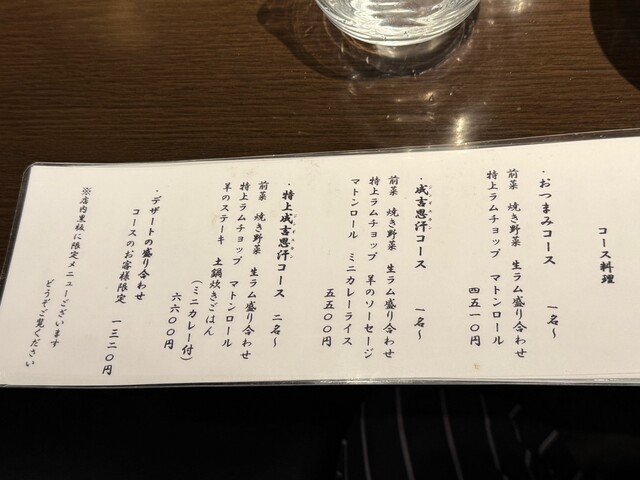 コース料理
・おつまみコース 一名〜
前菜 焼き野菜 生ラム盛り合わせ
特上ラムチョップ マトンロール
四五一〇円
・成吉思汗コース 一名〜
前菜 焼き野菜 生ラム盛り合わせ
特上ラムチョップ 羊のソーセージ
マトンロール ミニカレーライス
五五〇〇円
・特上成吉思汗コース 二名〜
前菜 焼き野菜 生ラム盛り合わせ
特上ラムチョップ マトンロール
羊のステーキ 土鍋炊きごはん
(ミニカレー付)
六六〇〇円
・デザートの盛り合わせ
コースのお客様限定 一三二〇円
※店内黒板に限定メニューございます
どうぞご覧ください